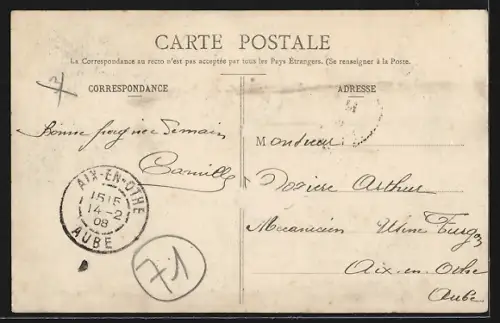 CARTE POSTALE
La Correspondance au recto n'est pas acceptée par tous les Pays Étrangers. (Se renseigner à la Poste.
CORRESPONDANCE
ADRESSE
Bonne
Camille
Monsieur
Arthur
Mecanicien Usine
Aix-en-Othe
Aube
AIX-EN-OTHE
15 15
14-2
08
AUBE
71